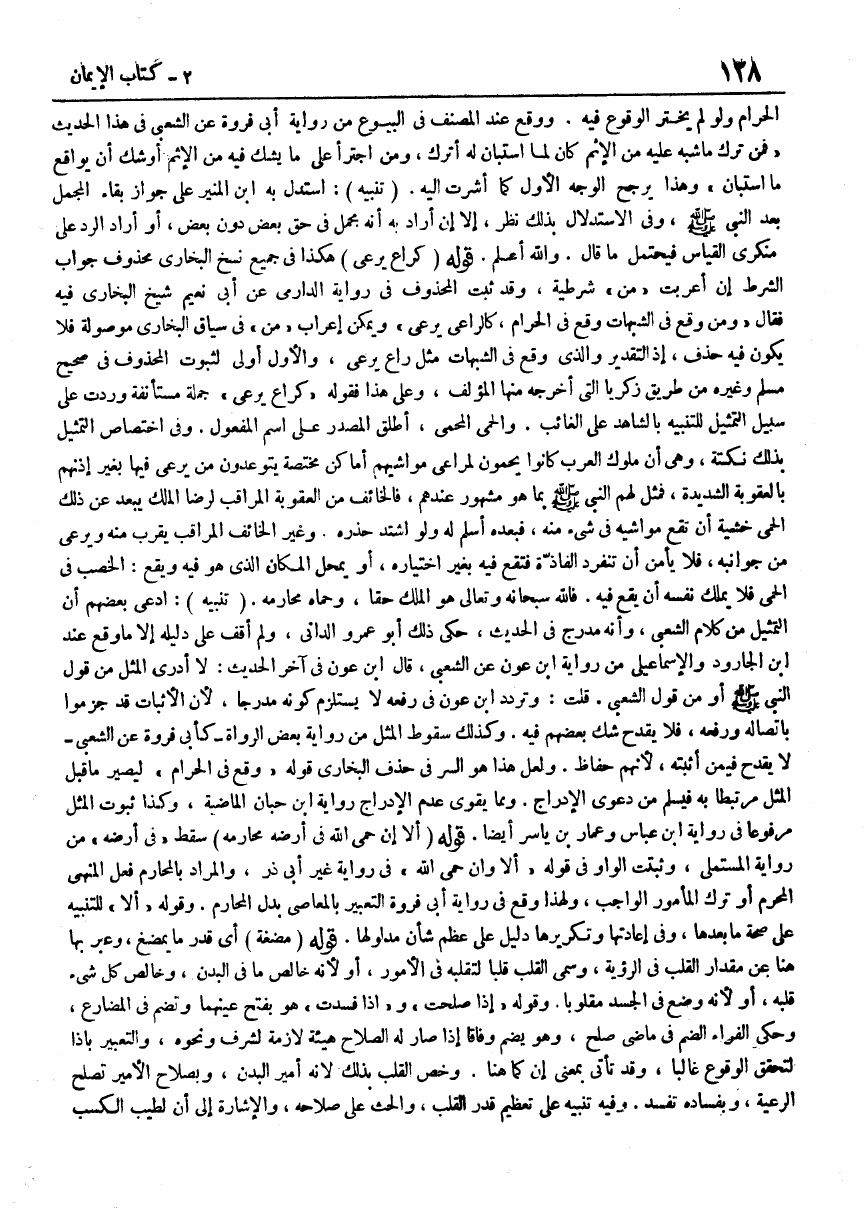 ١٢٨
٢ - كتاب الإيمان
الحرام ولو لم يختر الوقوع فيه . ووقع عند المصنف فى البيـوع من رواية أبى فروة عن الشعبى فى هذا الحديث
« فمن ترك ماشبه عليه من الإثم كان لمـا استبان له أترك ، ومن اجترأ على ما يشك فيه من الإثم أوشك أن يواقع
ما استبان » وهذا يرجح الوجه الأول كما أشرت اليه . ( تنبيه ) : استدل به ابن المنير على جواز بقاء المجمل
بعد النبى ﷺ ، وفى الاستدلال بذلك نظر ، إلا إن أراد به أنه مجمل فى حق بعض دون بعض ، أو أراد الرد على
منكرى القياس فيحتمل ما قال . والله أعـلم . قوله ( كراع يرعى ) هكذا فى جميع نسخ البخارى محذوف جواب
الشرط إن أعربت « من » شرطية ، وقد ثبت المحذوف فى رواية الدارمى عن أبى نعيم شيخ البخارى فيه
فقال « ومن وقع فى الشبهات وقع فى الحرام ، كالراعى يرعى » ويمكن إعراب « من » فى سياق البخارى موصولة فلا
يكون فيه حذف ، إذ التقدير والذى وقع فى الشبهات مثل راع يرعى ، والأول أولى لثبوت المحذوف فى صحيح
مسلم وغيره من طريق زكريا التى أخرجه منها المؤلف ، وعلى هذا فقوله « كراع يرعى » جملة مستأنفة وردت على
سبيل التمثيل للتنبيه بالشاهد على الغائب . والحمى المحمى ، أطلق المصدر عـلى اسم المفعول . وفى اختصاص التمثيل
بذلك نـكـتة ، وهى أن ملوك العرب كانوا يحمون لمراعى مواشيهم أماكن مختصة يتوعدون من يرعى فيها بغير إذنهم
بالعقوبة الشديدة ، فمثل لهم النبى ﷺ بما هو مشهور عندهم ، فالخائف من العقوبة المراقب لرضا الملك يبعد عن ذلك
الحمى خشية أن تقع مواشيه فى شىء منه ، فبعده أسلم له ولو اشتد حذره . وغير الخائف المراقب يقرب منه ويرعى
من جوانبه ، فلا يأمن أن تنفرد الفاذّة فتقع فيه بغير اختياره ، أو يمحل المـكان الذى هو فيه ويقع : الخصب فى
الحمى فلا يملك نفسه أن يقع فيه . فالله سبحانه وتعالى هو الملك حقا ، وحماه محارمه . ( تنبيه ) : ادعى بعضهم أن
التمثيل من كلام الشعبى ، وأنه مدرج فى الحديث ، حكى ذلك أبو عمرو الدانى ، ولم أقف على دليله إلا ماوقع عند
ابن الجارود والإسماعيلى من رواية ابن عون عن الشعبى ، قال ابن عون فى آخر الحديث : لا أدرى المثل من قول
النبى ﷺ أو من قول الشعبى . قلت : وتردد ابن عون فى رفعه لا يستلزم كونه مدرجا ، لأن الأثبات قد جزموا
باتصاله ورفعه ، فلا يقدح شك بعضهم فيه . وكذلك سقوط المثل من رواية بعض الرواة ـ كـأبى فروة عن الشعبى ـ
لا يقدح فيمن أثبته ، لأنهم حفاظ . ولعل هذا هو السر فى حذف البخارى قوله « وقع فى الحرام » ليصير ماقبل
المثل مرتبطا به فيسلم من دعوى الإدراج . ومما يقوى عدم الإدراج رواية ابن حبان الماضية ، وكذا ثبوت المثل
مرفوعا فى رواية ابن عباس وعمار بن ياسر أيضا . قوله ( ألا إن حمى الله فى أرضه محارمه ) سقط « فى أرضه » من
رواية المستملى ، وثبتت الواو فى قوله « ألا وان حمى الله » فى رواية غير أبى ذر ، والمراد بالمحارم فعل المنهى
المحرم أو ترك المأمور الواجب ، ولهذا وقع فى رواية أبى فروة التعبير بالمعاصى بدل المحارم . وقوله « ألا » للتنبيه
على صحة مابعدها ، وفى إعادتها وتكريرها دليل على عظم شأن مدلولها . قوله ( مضغة ) أى قدر مايمضغ ، وعبر بها
هنا عن مقدار القلب فى الرؤية ، وسمى القلب قلبا لتقلبه فى الأمور ، أو لأنه خالص ما فى البدن ، وخالص كل شىء
قلبه ، أو لأنه وضع فى الجسد مقلوبا . وقوله « إذا صلحت » و « اذا فسدت » هو بفتح عينهما وتضم فى المضارع ،
وحكى الفراء الضم فى ماضى صلح ، وهو يضم وفاقا إذا صار له الصلاح هيئة لازمة لشرف ونحوه ، والتعبير باذا
لتحقق الوقوع غالبا ، وقد تأتى بمعنى إن كما هنا . وخص القلب بذلك لأنه أمير البدن ، وبصلاح الأمير تصلح
الرعية ، وبفساده تفسد . وفيه تنبيه على تعظيم قدر القلب ، والحث على صلاحه ، والإشارة إلى أن لطيب الـكسب